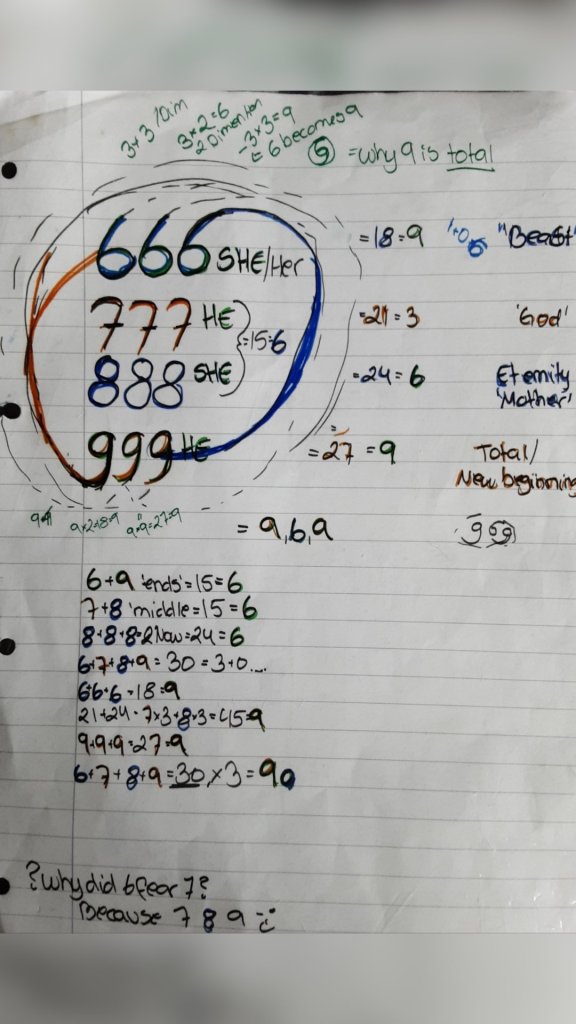 3x3 1Dim
3x2=6
2Dimention
-3x3=9
= 6 becomes 9
9 =why 9 is total
666 SHE/Her =18=9 "Beast"
777 HE =21=3 'God'
}=15=6
888 SHE =24=6 Eternity
'Mother'
999 HE =27=9 Total/
New beginning
9x2=18=9 9+9+9=27=9
= 9,6,9 999
6+9 'ends'=15=6
7+8 'middle=15=6
8+8+8=2Now=24=6
6+7+8+9=30=3+0....
6+6+6=18=9
21+24=7x3+8x3=45=9
9+9+9=27=9
6+7+8+9=30x3=90
?Why did 6 fear 7?
Because 7 8 9